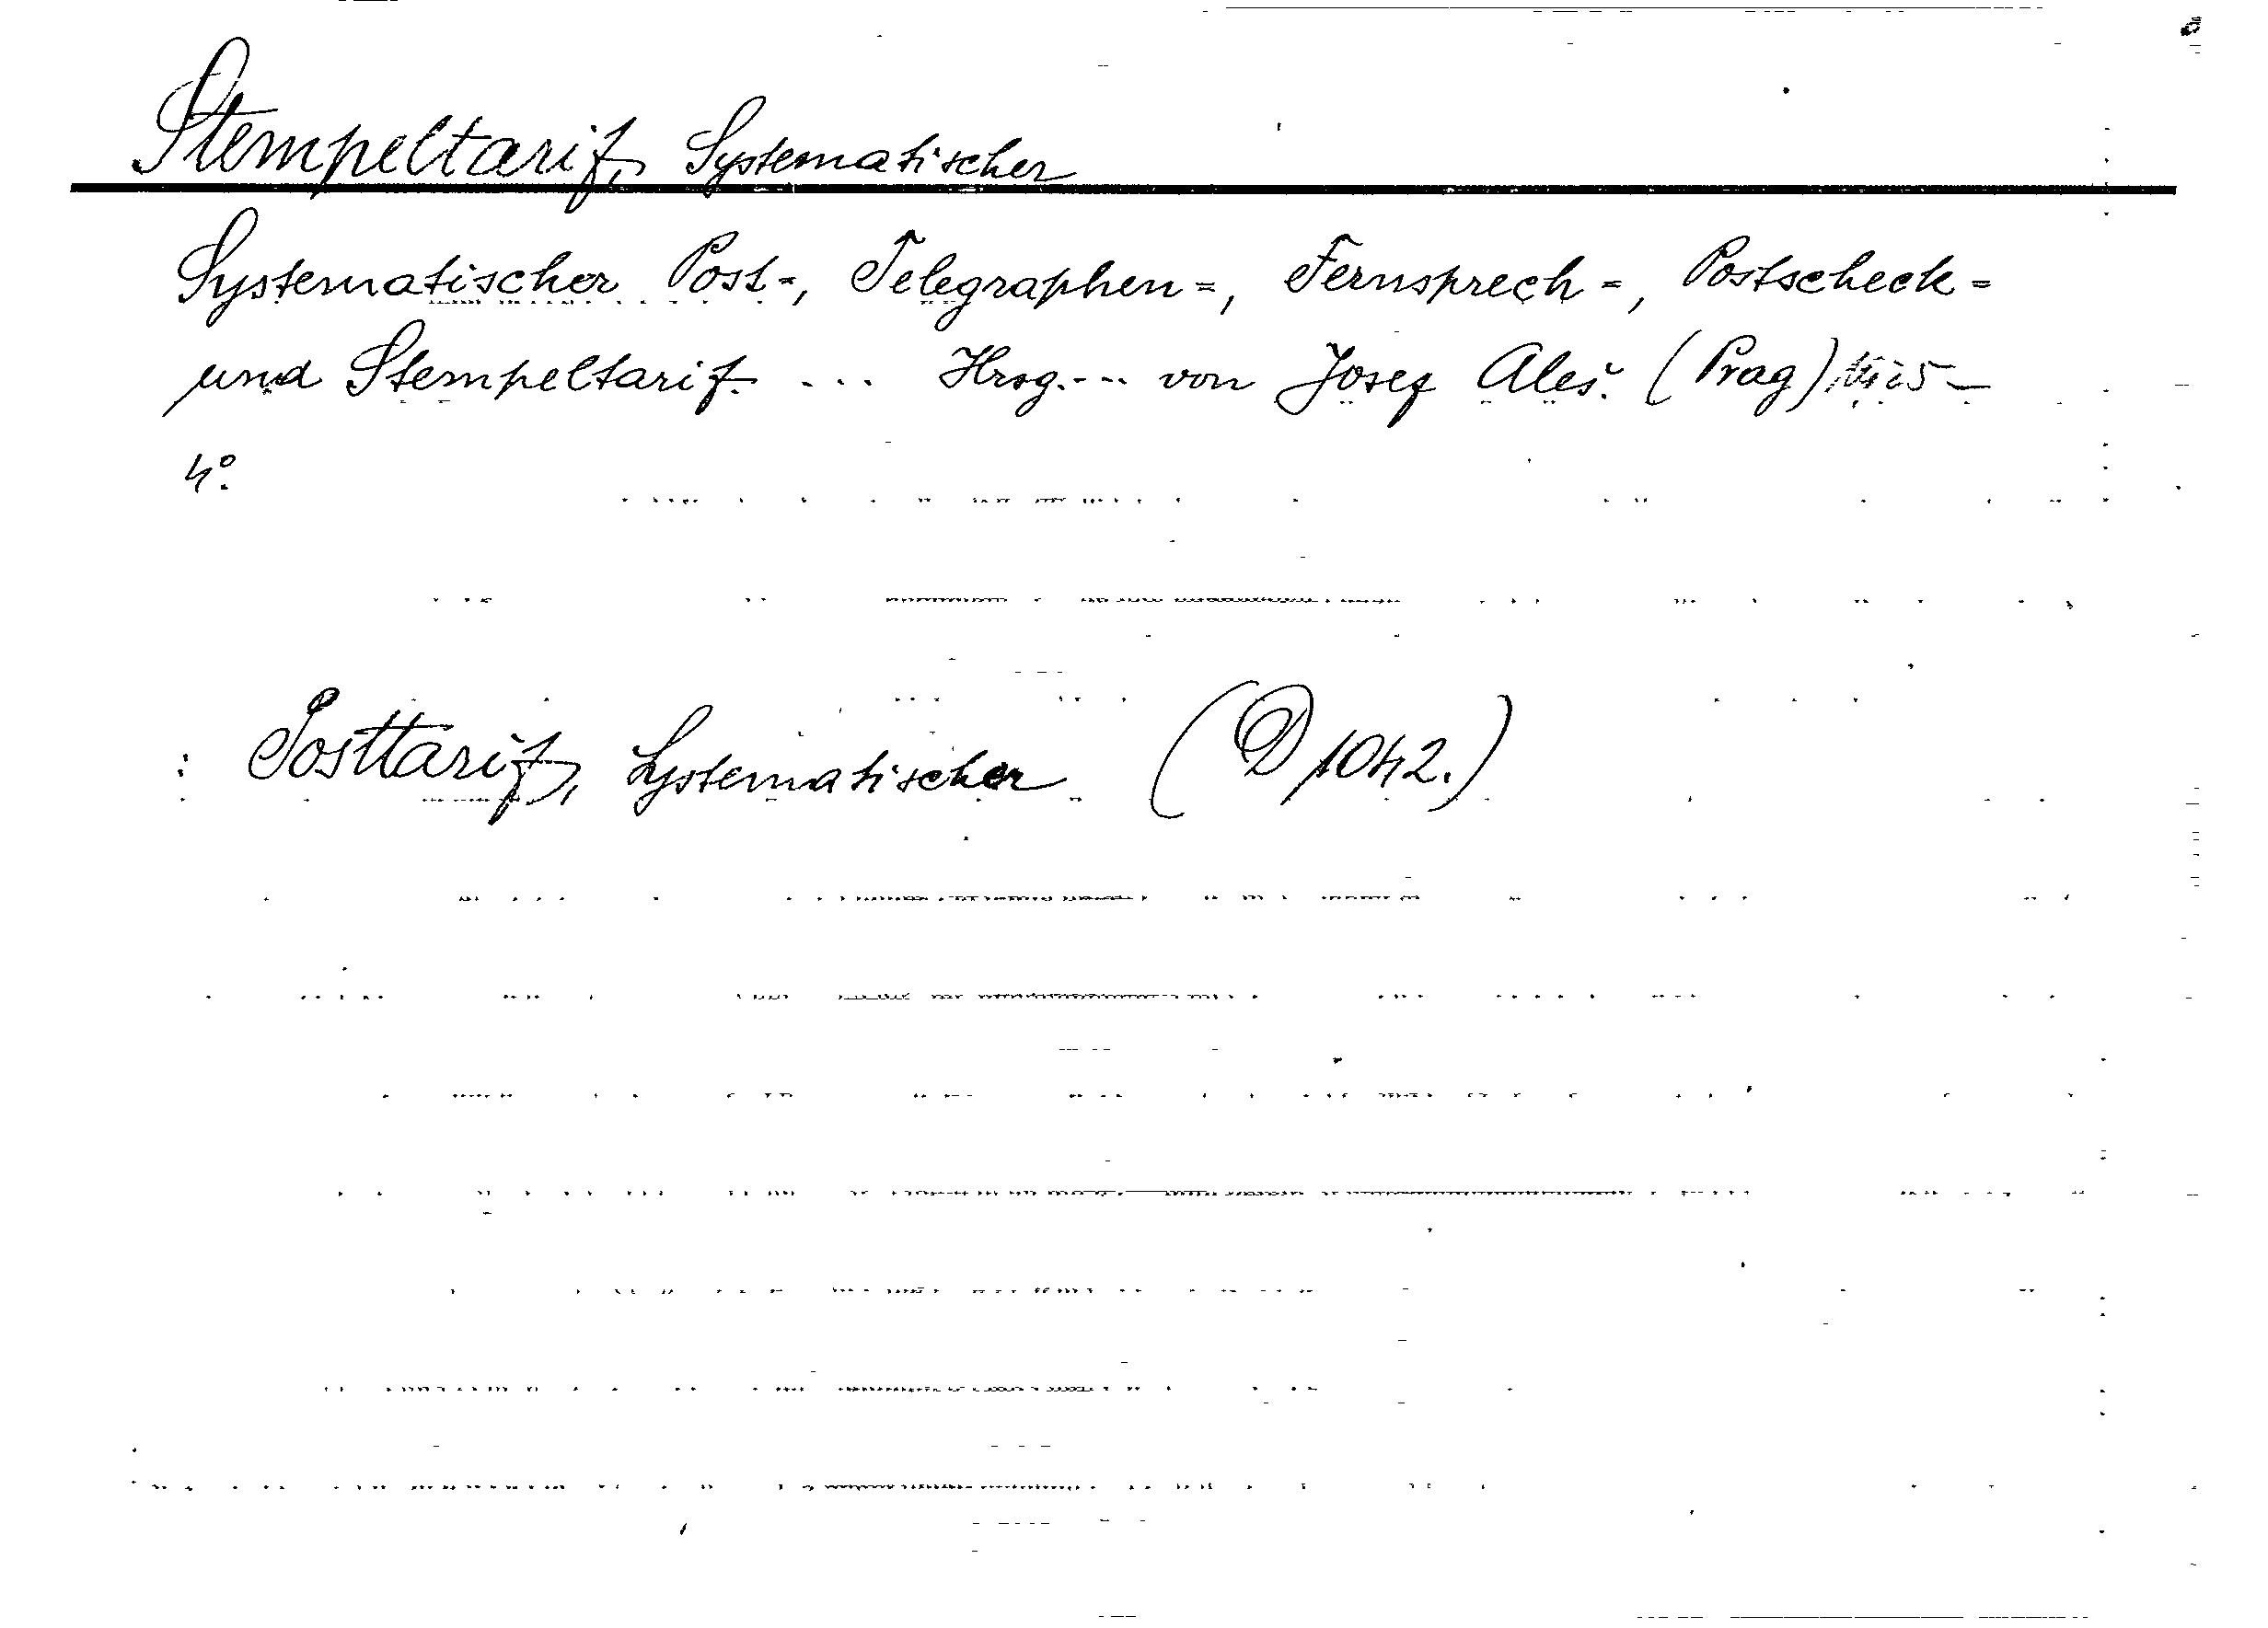 Stempeltarif, Systematischer
Systematischer Post-, Telegraphen-, Fernsprech-, Postscheck-
und Stempeltarif ... Hrsg. ... von Josef Aleš. (Prag)
4°.
: Posttarif, Systematischer (D 1042.)